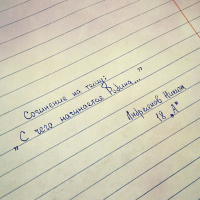 Сочинение на тему:
„С чего начинается Родина..."
Андреянов Никон
18 „А"